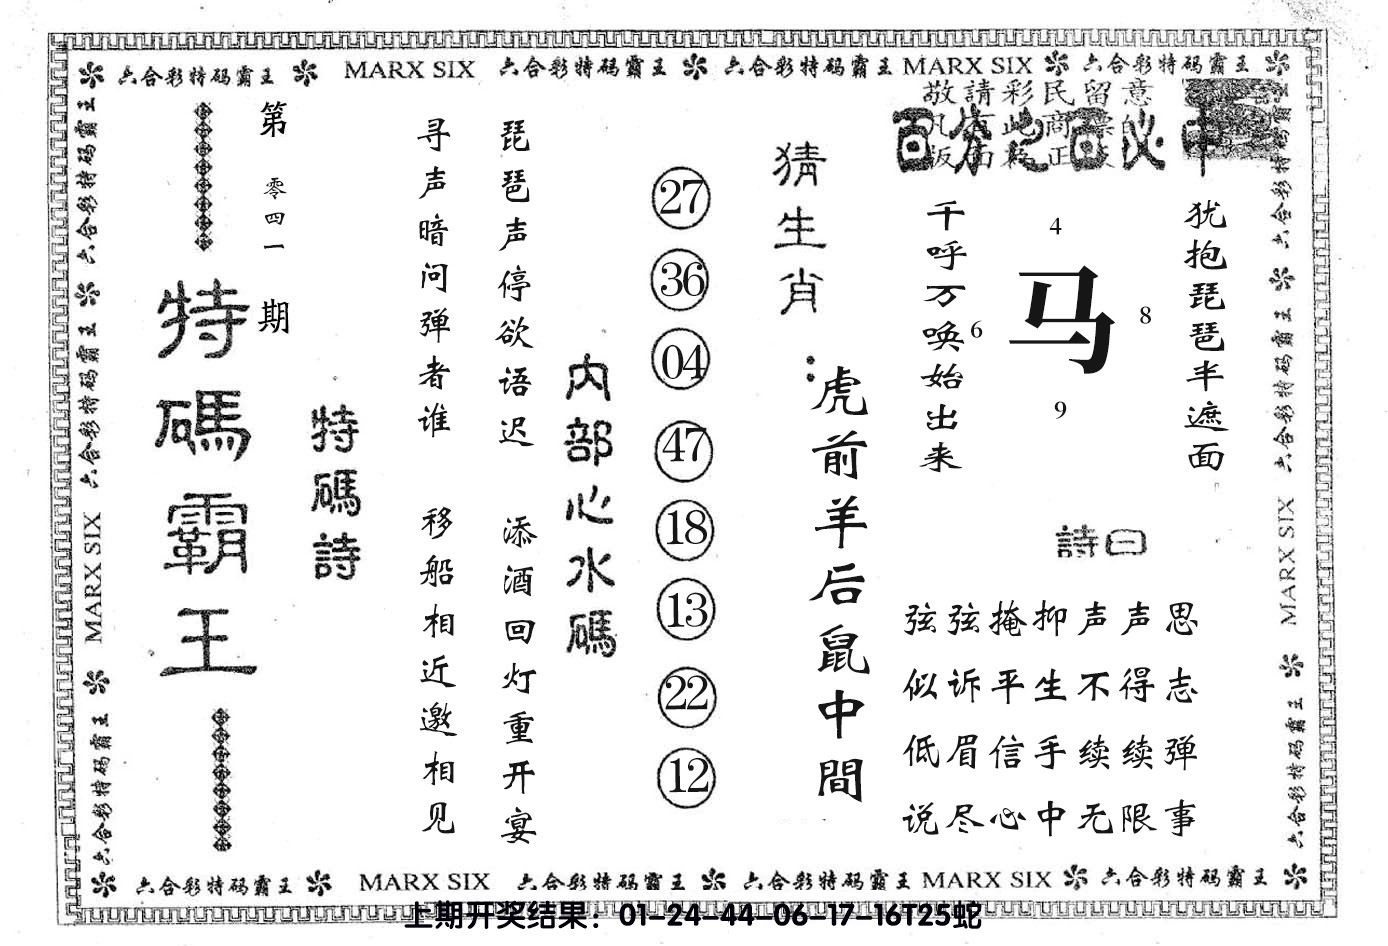 六合彩特码霸王 MARX SIX 六合彩特码霸王 六合彩特码霸王 MARX SIX 六合彩特码霸王
敬請彩民留意
百发百中
犹抱琵琶半遮面
千呼万唤始出来
4
马
6
8
9
詩曰
弦弦掩抑声声思
似诉平生不得志
低眉信手续续弹
说尽心中无限事
猜生肖：
虎前羊后鼠中間
27
36
04
47
18
13
22
12
内部心水碼
琵琶声停欲语迟
添酒回灯重开宴
寻声暗问弹者谁
移船相近邀相见
特碼詩
第零四一期
特碼霸王
六合彩特码霸王 六合彩特码霸王 MARX SIX 六合彩特码霸王
六合彩特码霸王 六合彩特码霸王 MARX SIX 六合彩特码霸王
六合彩特码霸王 MARX SIX 六合彩特码霸王 六合彩特码霸王 MARX SIX 六合彩特码霸王
上期开奖结果：01-24-44-06-17-16T25蛇